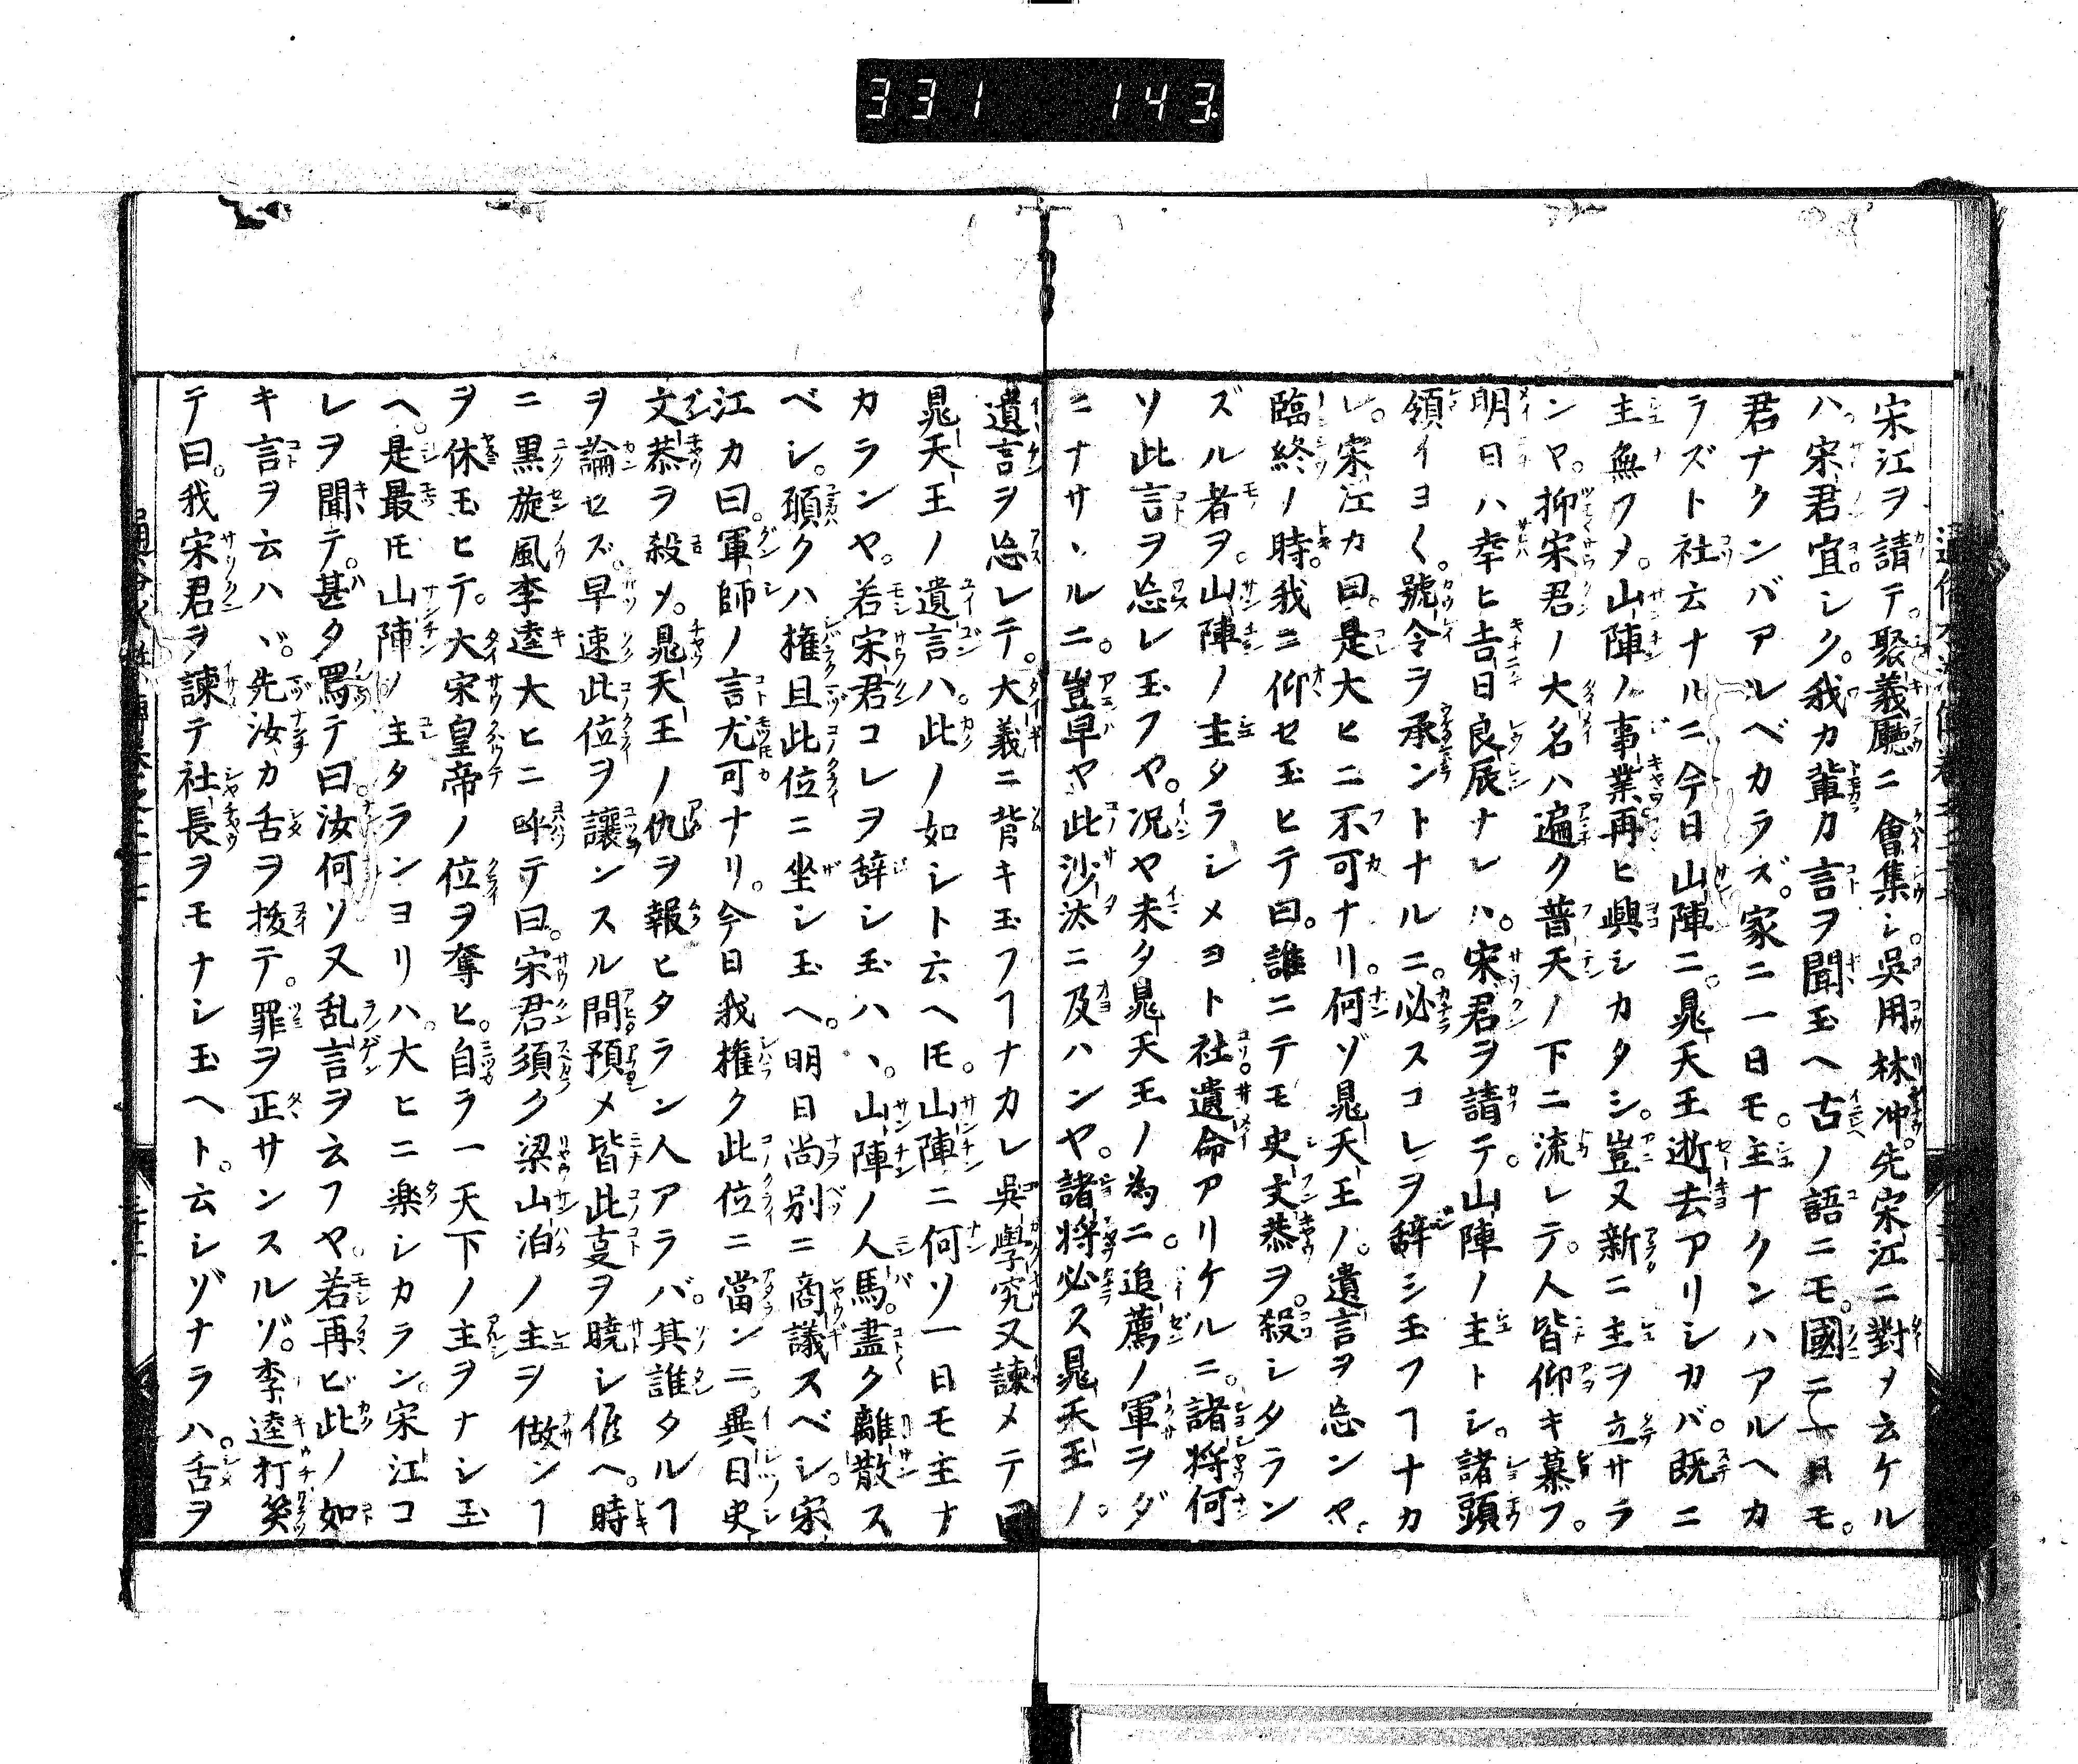 331 143
宋江ヲ請テ。聚義廳ニ會集シ。吳用林冲。先宋江ニ對メ云ケル
ハ。宋君宜シク。我カ輩カ言ヲ聞玉ヘ古ノ語ニモ。國ニ一日モ。
君ナクンバアルベカラズ。家ニ一日モ。主ナクンハアルヘカ
ラズト社云ナルニ今日山陣ニ。晁天王逝去アリシカバ。既ニ
主無フメ。山陣ノ事業再ヒ興シカタシ。豈又新ニ主ヲ立サラ
ンヤ。抑宋君ノ大名ハ遍ク普天ノ下ニ流レテ。人皆仰キ慕フ。
明日ハ幸ヒ吉日良辰ナレハ。宋君ヲ請テ。山陣ノ主トシ。諸頭
領イヨ〱。號令ヲ承ントナルニ。必スコレヲ辞シ玉フヿナカ
レ。宋江カ曰。是大ヒニ不可ナリ。何ゾ晁天王ノ。遺言ヲ忘ンヤ。
臨終ノ時。我ニ仰セ玉ヒテ曰。誰ニテモ史文恭ヲ。殺シタラン
ズル者ヲ。山陣ノ主タラシメヨト社遺命アリケルニ。諸将何
ソ此言ヲ忘レ玉フヤ。况ヤ未タ晁天王ノ為ニ。追薦ノ軍ヲダ
ニナサヽルニ。豈早ヤ此沙汰ニ及ハンヤ。諸将必ス晁天王ノ。
遺言ヲ忘レテ。大義ニ背キ玉フヿナカレ吳學究又諫メテ曰
晁天王ノ遺言ハ。此ノ如シト云ヘ𪜈。山陣ニ何ソ一日モ主ナ
カランヤ。若宋君コレヲ辞シ玉ハヽ。山陣ノ人馬。盡ク離散ス
ベシ。頋クハ権且此位ニ坐シ玉ヘ。明日尚別ニ商議スベシ。宋
江カ曰。軍師ノ言尤可ナリ。今日我権ク此位ニ當ンニ。異日史
文恭ヲ殺メ。晁天王ノ仇ヲ報ヒタラン人アラバ。其誰タルヿ
ヲ論セズ。早速此位ヲ讓ンスル間預メ皆此叓ヲ曉シ候ヘ。時
ニ黒旋風李逵大ヒニ呌テ曰。宋君須ク梁山泊ノ主ヲ做ンヿ
ヲ休玉ヒテ。大宋皇帝ノ位ヲ奪ヒ。自ラ一天下ノ主ヲナシ玉
ヘ。是最𪜈山陣ノ主タランヨリハ。大ヒニ楽シカラン。宋江コ
レヲ聞テ。甚タ罵テ曰。汝何ソ又乱言ヲ云フヤ。若再ビ此ノ如
キ言ヲ云ハヾ。先汝カ舌ヲ抜テ。罪ヲ正サンスルゾ。李逵打笑
テ曰。我宋君ヲ諫テ社長ヲモナシ玉ヘト。云シゾナラハ。舌ヲ